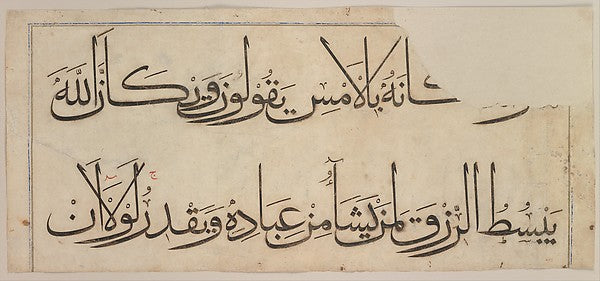 كَانَهُ بِالْاَمْسِ يَقُولُونَ وَيْكَاَنَّ اللَّهَ
يَبْسُطُ الرِّزْقَ لِمَنْ يَشَآءُ مِنْ عِبَادِهِ وَيَقْدِرُ ج لَوْلَا اَنْ